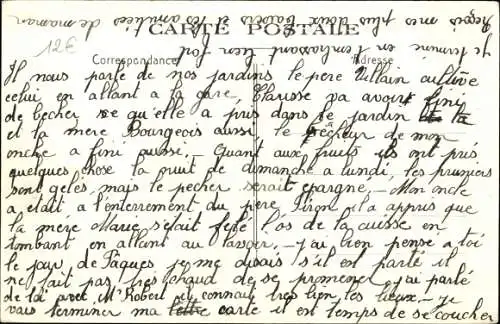 Reçois mes plus doux baisers et les amitiés de maman
Je termine en t'embrassant bien fort
CARTE POSTALE
12€
Correspondance
Adresse
Il nous parle de nos jardins le pere Villain cultive
celui en allant a la gare, Clarisse va avoir fini
de becher ce qu'elle a pris dans le jardin
et la mere Bourgeois aussi, le pêcheur de mon
oncle a fini aussi. - Quant aux fruits ils ont pris
quelques chose la nuit de dimanche a lundi, les pruniers
sont gelés, mais le pecher serait epargne. - Mon oncle
a était a l'enterrement du pere Piron, il a appris que
la mere Marie s'était fele l'os de la cuisse en
tombant en allant au lavoir. - j'ai bien pense a toi
le jour de Pâques je me disais s'il est parté il
ne fait pas tres chaud de se promener, j'ai parlé
de toi avec Mr Robert qui connait tres bien les lieux. - je
vais terminer ma lettre carte il est temps de se coucher